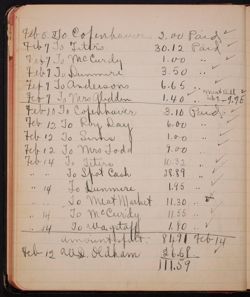 Feb 6 To Copenhaver 2.00 Paid
Feb 7 To Titers 30.12 Paid
Feb 7 To McCurdy 1.00 "
Feb 7 To Dunmire 3.50 "
Feb 7 To Andersons 6.65 "
Feb 7 To Mrs Glidden 1.40 "
Feb 10 To Copenhaver 3.10 Paid
Feb 12 To Day 6.00 "
Feb 12 To 1.00 "
Feb 12 To Mrs Todd 9.00
Feb 14 To Titers 10.32 "
" To Spot Cash 28.89 "
" 14 To Dunmire 1.95 "
" To Meat Market 11.30 "
" 14 To McCurdy 11.55 "
" 14 To Wagstaff 1.80 "
amount 81.91 Feb 14
Feb 12 Oldham
111.59